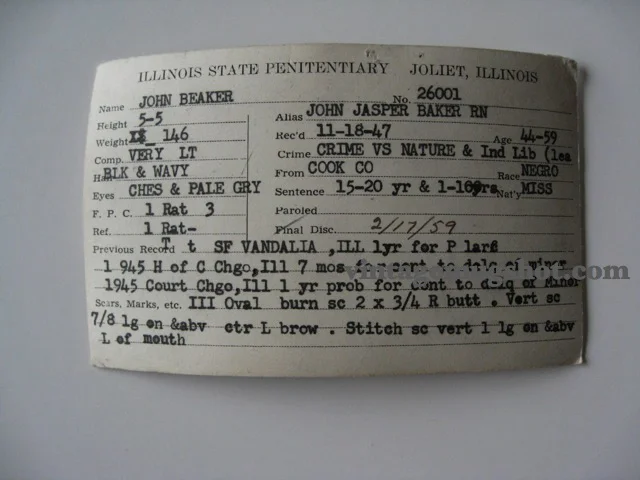 ILLINOIS STATE PENITENTIARY JOLIET, ILLINOIS
Name JOHN BEAKER No. 26001
Height 5-5 Alias JOHN JASPER BAKER RN
Weight 146 Rec'd 11-18-47 Age 44-59
Comp. VERY LT Crime CRIME VS NATURE & Ind Lib (lea
Hair BLK & WAVY From COOK CO Race NEGRO
Eyes CHES & PALE GRY Sentence 15-20 yr & 1- yrs Nat'y MISS
F. P. C. 1 Rat 3 Paroled
Ref. 1 Rat- Final Disc. 2/17/59
Previous Record T t SF VANDALIA ,ILL 1yr for P lars
1 945 H of C Chgo,Ill 7 mos for cont to delq of minor
1945 Court Chgo,Ill 1 yr prob for cont to delq of Minor
Scars, Marks, etc. III Oval burn sc 2 x 3/4 R butt . Vert sc
7/8 lg on &abv ctr L brow . Stitch sc vert 1 lg on &abv
L of mouth